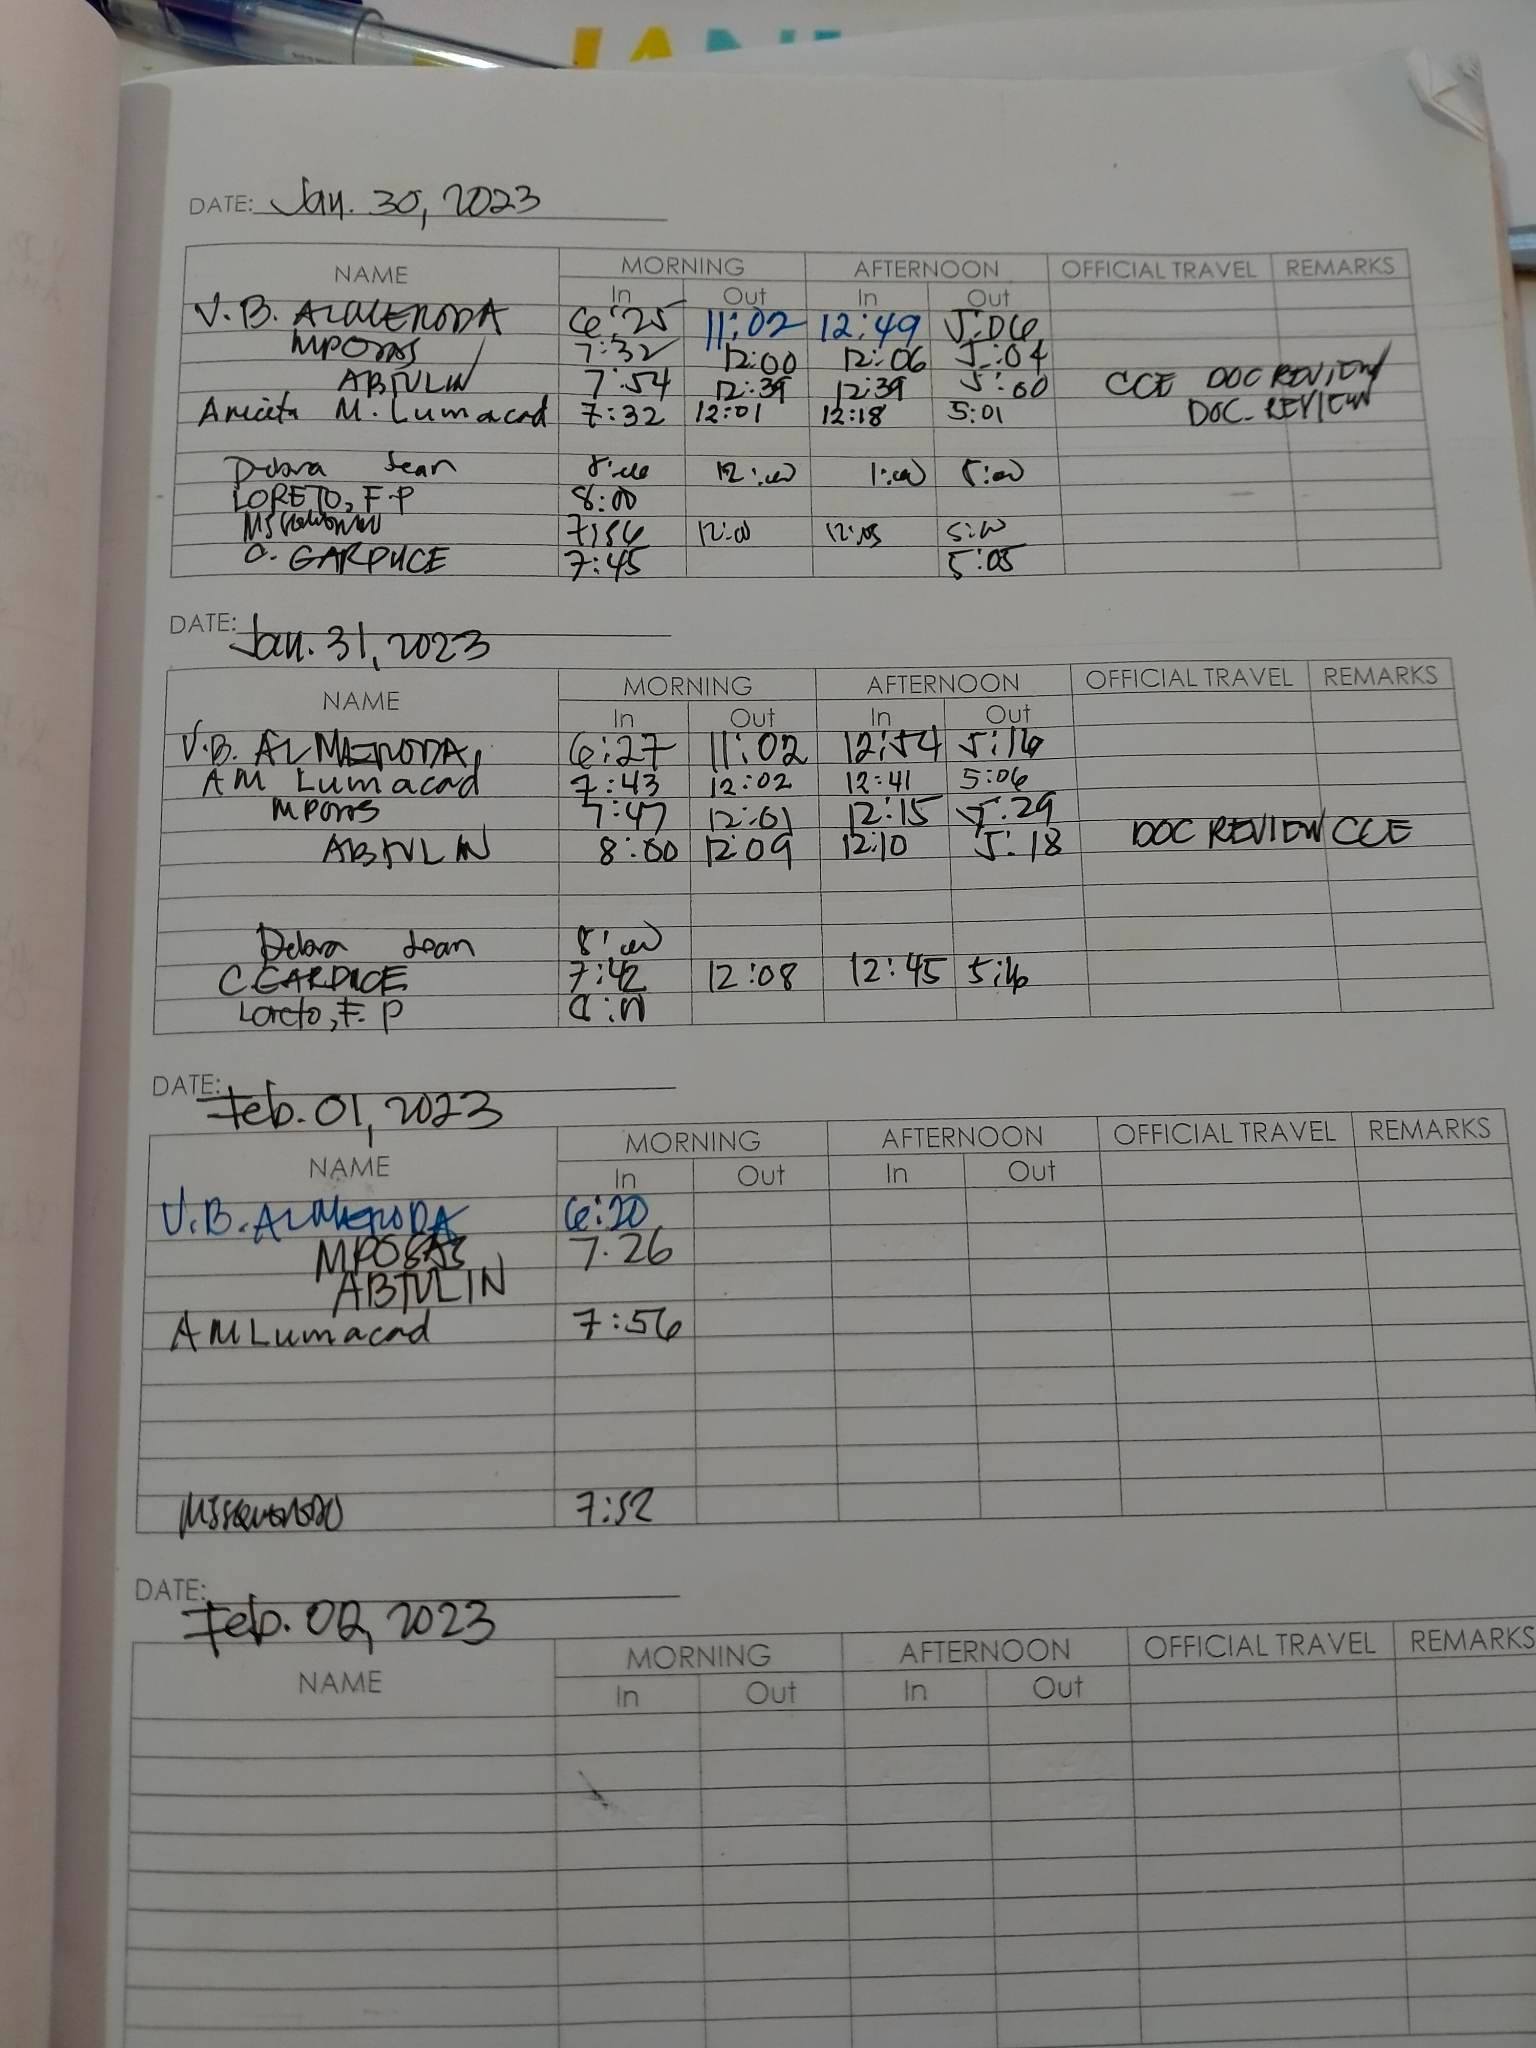 DATE: Jan. 30, 2023
NAME MORNING AFTERNOON OFFICIAL TRAVEL REMARKS
In Out In Out
V.B. ALMENODA 6:25 11:02 12:49 5:06
7:32 12:00 12:06 5:04
ABTULIN 7:54 12:39 12:39 5:00 CCE DOC REVIEW
M. Lumacad 7:32 12:01 12:18 5:01 DOC. REVIEW
Debora Jean 8:00 12:00 1:00 5:00
LORETO, F.P 8:00
7:56 12:00 12:05 5:00
C. GARDUCE 7:45 5:05
DATE: Jan. 31, 2023
NAME MORNING AFTERNOON OFFICIAL TRAVEL REMARKS
In Out In Out
V.B. ALMENODA 6:27 11:02 12:54 5:16
AM Lumacad 7:43 12:02 12:41 5:06
7:47 12:01 12:15 5:29
ABTULIN 8:00 12:09 12:10 5:18 DOC REVIEW CCE
Debora Jean 8:00
C. GARDUCE 7:42 12:08 12:45 5:16
Loreto, F. P
DATE: Feb. 01, 2023
NAME MORNING AFTERNOON OFFICIAL TRAVEL REMARKS
In Out In Out
V.B. ALMENODA 6:20
MPOSAS 7.26
ABTULIN
AM Lumacad 7:56
7:52
DATE: Feb. 02, 2023
NAME MORNING AFTERNOON OFFICIAL TRAVEL REMARKS
In Out In Out